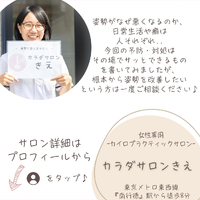 姿勢がなぜ悪くなるのか、
日常生活や癖は
人それぞれ、、
今回の予防・対処は
その場でサッとできるもの
を書いてみましたが、
根本から姿勢を改善したい
という方は一度ご相談ください♪
カラダサロン
きえ
サロン詳細は
プロフィールから
をタップ♪
女性専用
-カイロプラクティックサロン-
カラダサロンきえ
東京メトロ東西線
『南行徳』駅から徒歩8分